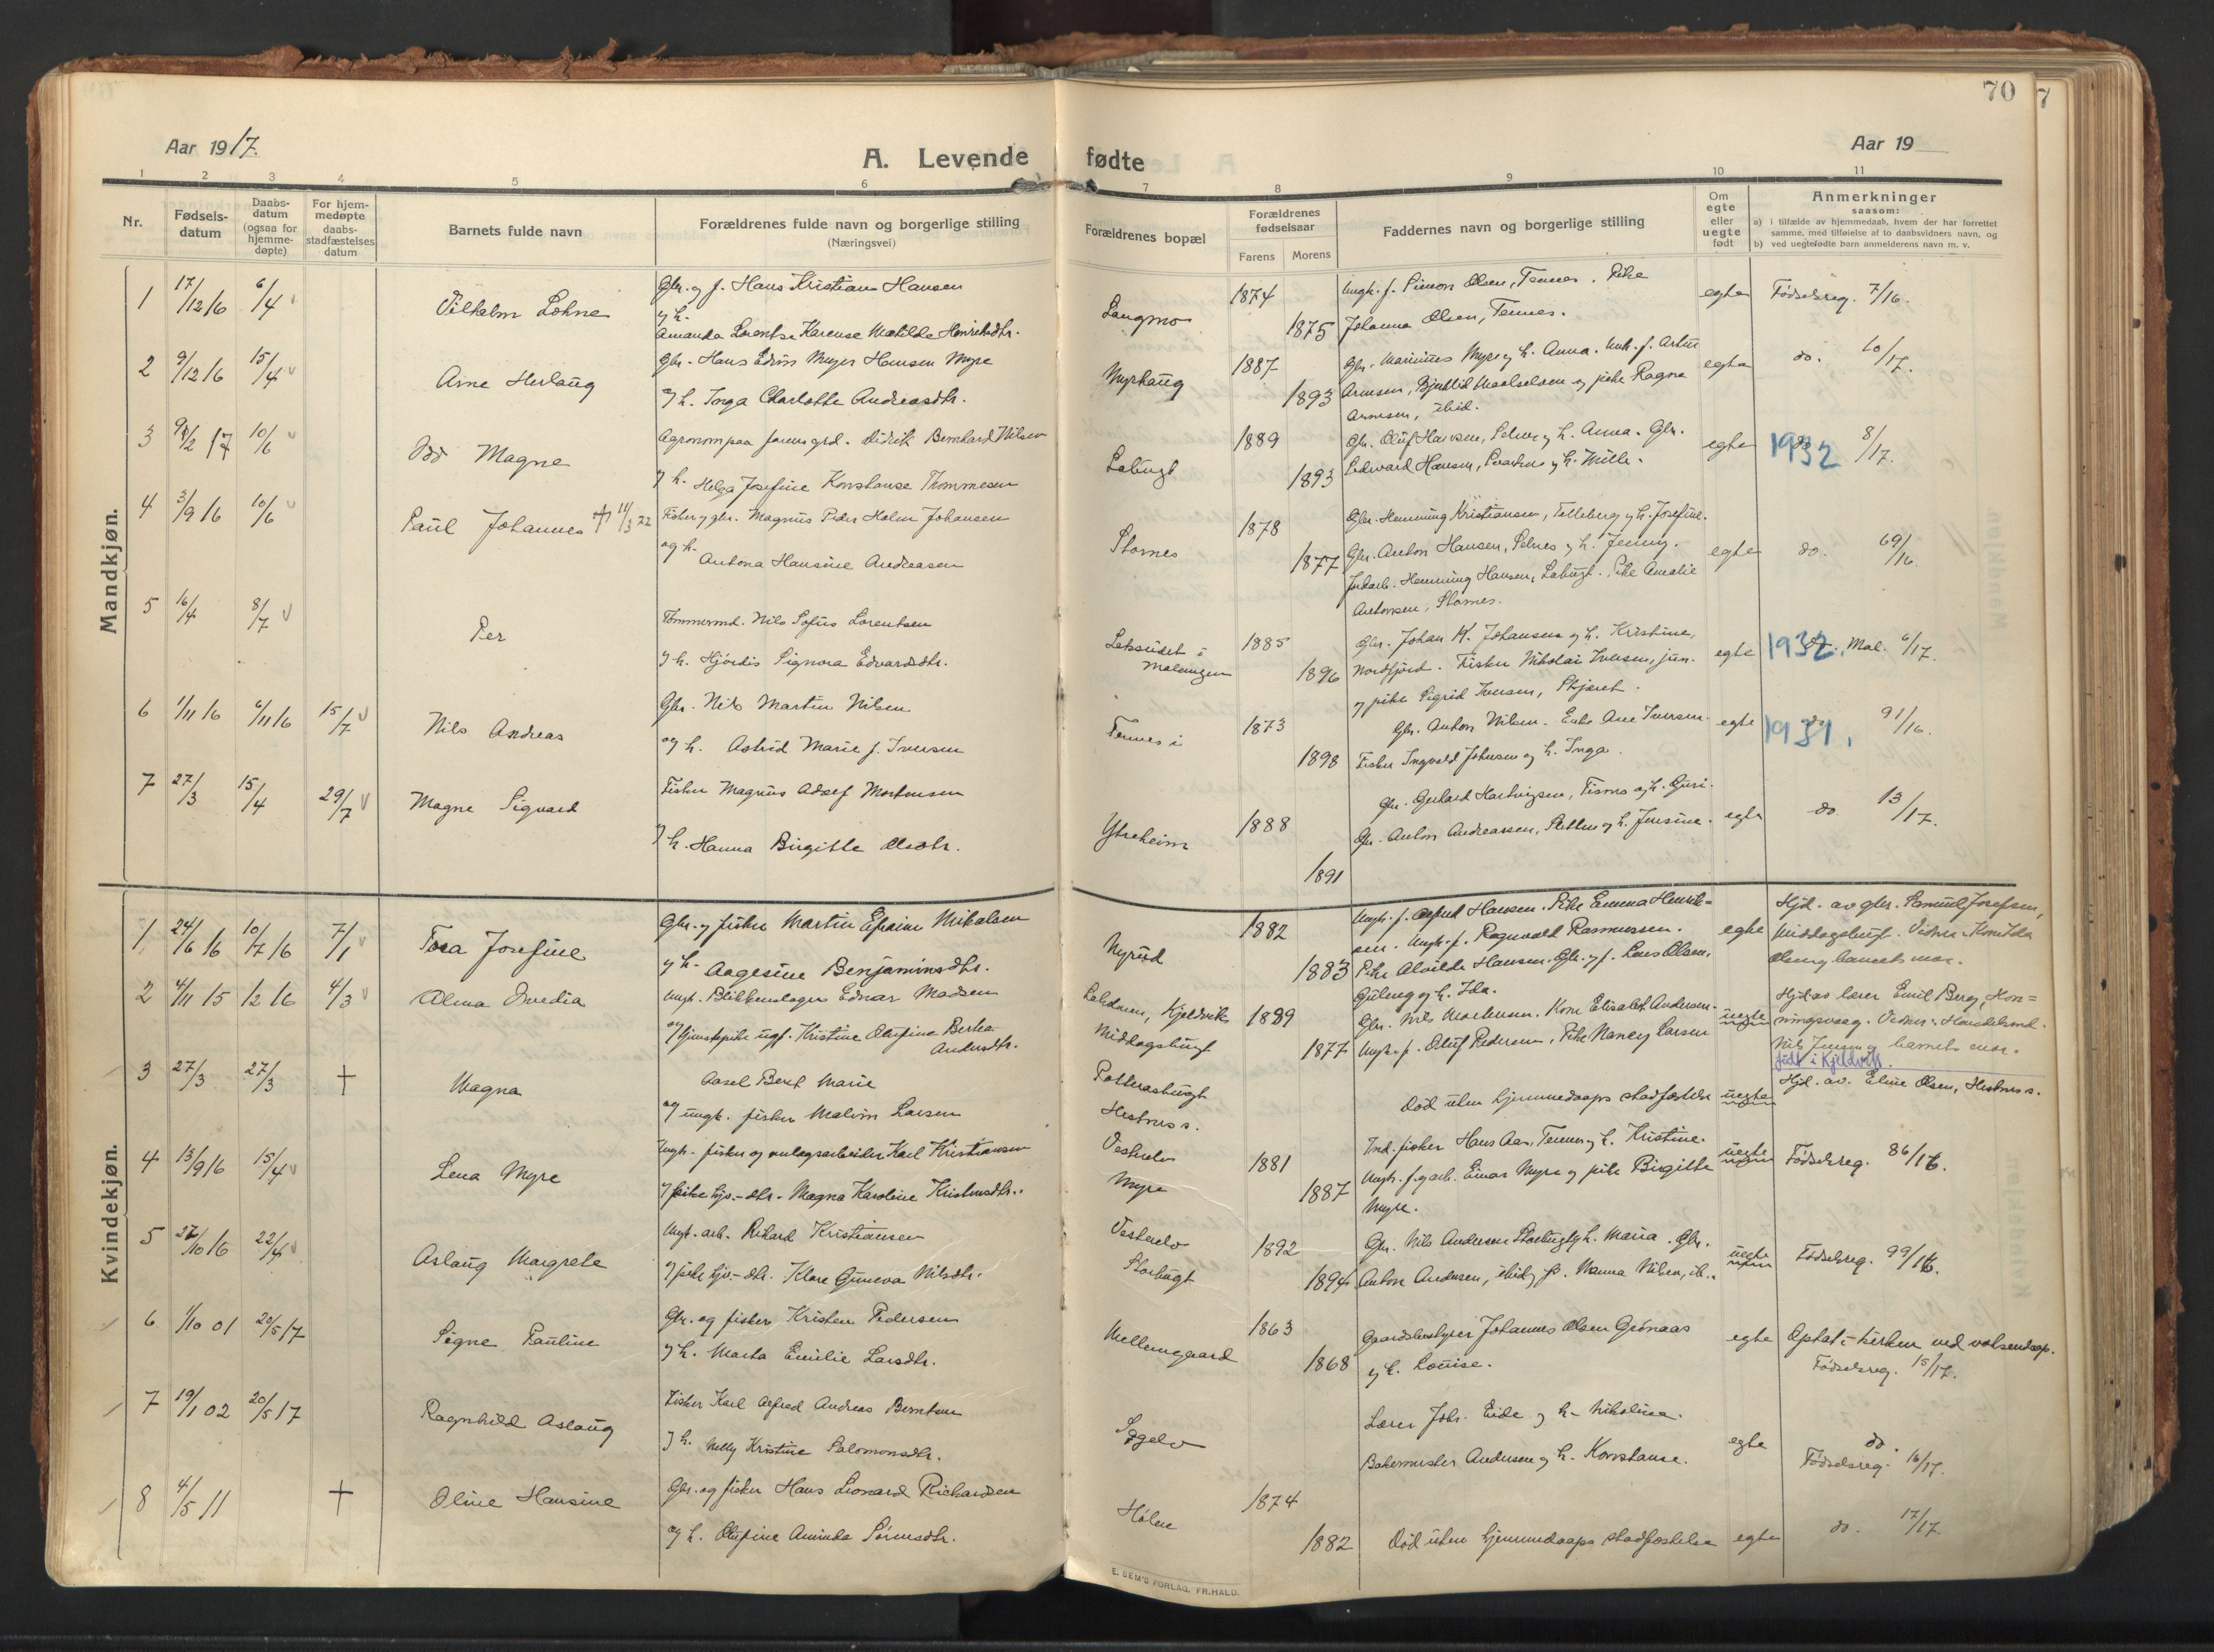 70
7
Aar 1917.
A. Levende fødte
Aar 19
1 2 3 4 5 6 7 8 9 10 11
Nr.
Fødsels-
datum
Daabs-
datum
(ogsaa for
hjemme-
døpte)
For hjem-
medøpte
daabs-
stadfæstelses
datum
Barnets fulde navn
Forældrenes fulde navn og borgerlige stilling
(Næringsvei)
Forældrenes bopæl
Forældrenes
fødselsaar
Farens Morens
Faddernes navn og borgerlige stilling
Om
egte
eller
uegte
født
Anmerkninger
saasom:
a) i tilfælde av hjemmedaab, hvem der har forrettet
samme, med tilføielse af to daabsvidners navn, og
b) ved uegtefødte barn anmelderens navn m. v.
Mandkjøn.
1 17/12 16 6/4 Vilhelm Lohne
Gbr. og f. Hans Kristian Hansen
og h.
Amanda Lorentse Karense Matilde Henrichsdtr.
Langmo 1874 1875
Ungk. f. Simon Olsen, Tennes. Pike
Johanna Olsen, Tennes.
egte Fødselsreg. 7/16.
2 9/12 16 15/4 Arne Herlaug
Gbr. Hans Edvin Meyer Hansen Myre
og h. Inga Charlotte Andreasdtr.
Myrhaug 1887 1893
Gbr. Marinius Myre og h. Anna. Ungk. f. Artur
Arnesen, Maalselven og pike Ragna
Arnesen, ibid.
egte do. 10/17.
3 /2 17 10/6 Odd Magne
Agronom paa Bernhard Nilsen
og h. Helga Josefine Konstanse Trommesen
Labugt 1889 1893
Gbr. Oluf Hansen, Selnes og h. Anna. Gbr.
Edward Hansen, og h. Mille.
egte 1932 8/17.
4 3/9 16 10/6 Paul Johannes † 11/3 22
Fisker og gbr. Magnus Peder Holm Johansen
og h. Antona Hansine Andreasen
Stornes 1878 1877
Gbr. Henning Kristiansen, Telleberg og h. Josefine.
Gbr. Anton Hansen, Selnes og h. Jenny.
Jordarb. Henning Hansen, Labugt. Pike Amalie
Antonsen, Stornes.
egte do. 69/16.
5 16/4 8/7 Per
Tømmermd. Nils Sofus Lorentsen
og h. Hjørdis Signora Edvardsdtr.
i Malangen 1885 1896
Gbr. Johan K. Johansen og h. Kristine,
Nordfjord. Fisker Nikolai Iversen, jun.
og pike Sigrid Iversen, Skjæret.
egte 1932. Mal. 6/17.
6 1/11 16 6/11 16 15/7 Nils Andreas
Gbr. Nils Martin Nilsen
og h. Astrid Marie f. Iversen
Tennes i 1873 1898
Gbr. Anton Nilsen. Enke Ane Iversen.
Fisker Ingvald Johnsen og h. Inga.
egte 1931. 91/16.
7 27/3 15/4 29/7 Magne Sigvard
Fisker Magnus Adolf Mortensen
og h. Hanna Birgitte Olsdtr.
Ytreheim 1888 1891
Gbr. Gerhard Hartvigsen, Tisnes og h. Guri.
Gbr. Anton Andreassen, Sletten og h. Jensine.
egte do. 13/17.
Kvindekjøn.
1 24/6 16 10/7 16 7/1 Tora Josefine
Gbr. og fisker Martin Efraim Mikalsen
og h. Aagesine Benjaminsdtr.
Nyrud 1882 1883
Ungk. f. Alfred Hansen. Pike Emma Henrik=
sen. Ungk. f. Ragnvald Rasmussen.
Pike Alvilde Hansen. Gbr. og f. Lars Olsen,
Guleng og h. Ida.
egte Hjd. av gbr. Samuel Josefsen,
Middagsbugt. Vidner: Kone Ida
Olsen og barnets mor.
2 4/11 15 1/2 16 4/3 Alma Ovedia
Ungk. Blikkenslager Edvar Madsen
og tjenestepike ugf. Kristine Olufine Berthea
Andersdtr.
Kjeldvik
Middagsbugt 1889 1877
Gbr. Nils Mortensen. Kone Elisabet Andersen.
Ungk. f. Oluf Pedersen, Pike Nancy Larsen
uegte Hjd. av lærer Emil Berg, Kon=
ningsvaag. Vidner: Handelsmd.
Nils Jensen og barnets mor.
født i Kjeldvik.
3 27/3 27/3 † Magna
Aasel Berit Marie
og ungk. fisker Malvin Larsen
Hestnes s.
Død uten hjemmedaaps stadfæstelse uegte
Hjd. av. Eline Olsen, Hestnes s.
4 13/9 16 15/4 Lena Myre
Ungk. fisker og anlægsarbeider Karl Kristiansen
og pike hjv. dtr. Magna Karoline Kristensdtr.
Vestrelv
Myre 1881 1887
Ind. fisker Hans Aas, Tennes og h. Kristine.
Ungk. f. og arb. Einar Myre og pike Birgitte
Myre.
uegte Fødselsreg. 86/16.
5 27/10 16 22/4 Aslaug Margrete
Ungk. arb. Rikard Kristiansen
og pike hjv. dtr. Klara Guneva Nilsdtr.
Vestrelv
Storbugt 1892 1894
Gbr. Nils Andersen Storbugt og h. Maria. Gbr.
Anton Andersen, ibid. og p. Nanna Nilsen, ib.
uegte Fødselsreg. 99/16.
6 1/10 01 20/5 17 Signe Pauline
Gbr. og fisker Kristen Pedersen
og h. Marta Emilie Larsdtr.
Mellemgaard 1863 1868
Gaardsbestyrer Johannes Olsen Grønaas
og h. Louise.
egte Optat i kirken ved voksendaap.
Fødselsreg. 15/17.
7 19/1 02 20/5 17 Ragnhild Aslaug
Fisker Karl Alfred Andreas Berntsen
og h. Nelly Kristine Salomonsdtr.
Sagelv
Lærer Johs. Eide og h. Nikoline.
Bakermester Andersen og h. Konstanse.
egte do.
Fødselsreg. 16/17.
8 4/5 11 † Oline Hansine
Gbr. og fisker Hans Leonard Richardsen
og h. Olufine Aminda Sørensdtr.
Holm 1874 1882
Død uten hjemmedaaps stadfæstelse egte
do. 17/17.
E. SEM'S FORLAG, FR.HALD.